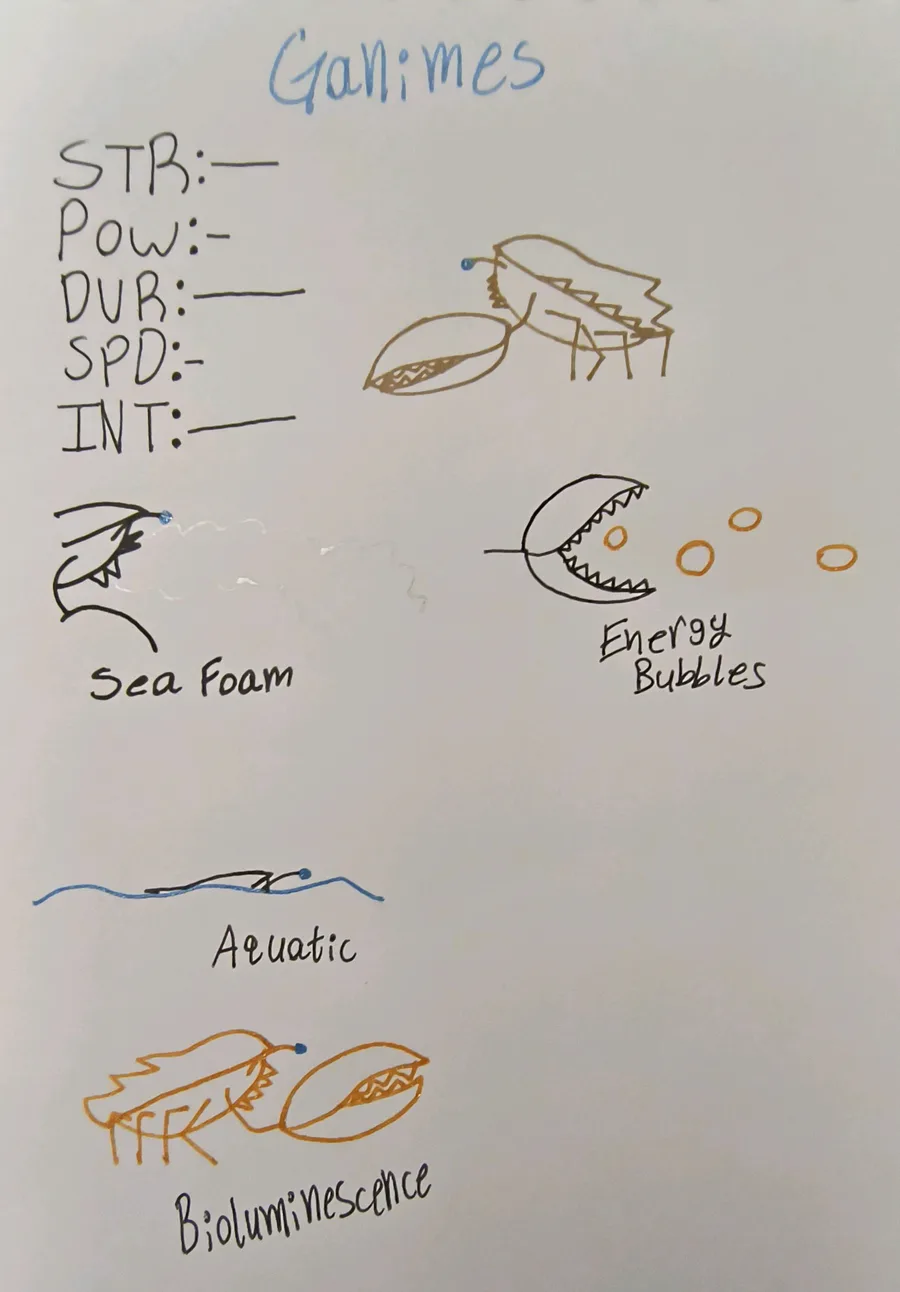 Ganimes
STR:—
POW:-
DUR:—
SPD:-
INT:—
Sea Foam
Energy
Bubbles
Aquatic
Bioluminescence